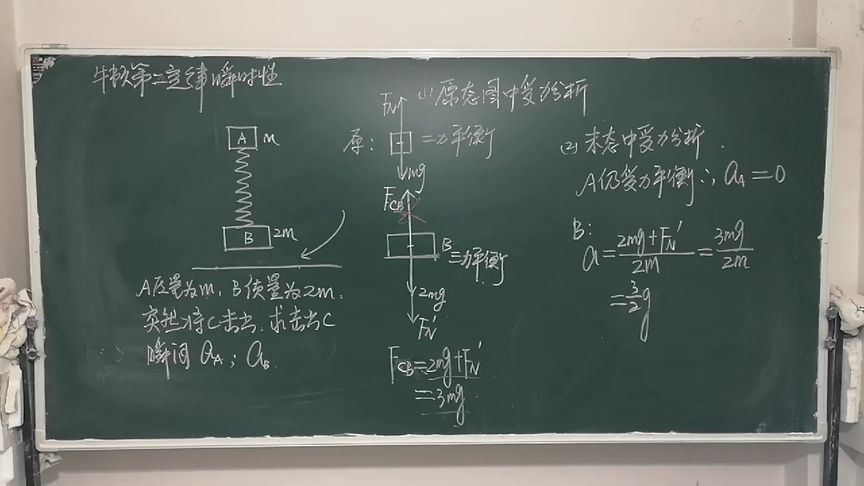 牛顿第二定律瞬时性
A m
B 2m
A质量为m，B质量为2m.
突然将C击出，求击出C
瞬间 aA；aB
(1) 原态图中受力分析
原：
FN
二力平衡
mg
FCB
B 三力平衡
2mg
FN'
FCB=2mg+FN'
=3mg
(2) 末态中受力分析.
A仍受力平衡∴ aA=0
B：
a=2mg+FN'/2m=3mg/2m
=3/2g